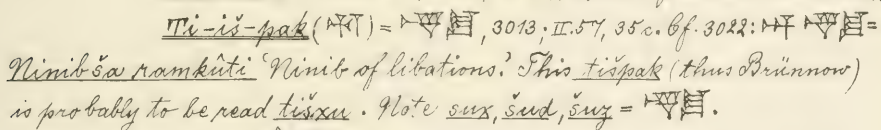 Ti-iš-pak ( ) = 𒈽, 3013; II.57, 35c. Cf. 3022: 𒀭 𒈽 =
Ninib ša ramkûti 'Ninib of libations.' This tišpak (thus Brünnow)
is probably to be read tišxu. Note sux, šud, šuz = 𒈽.